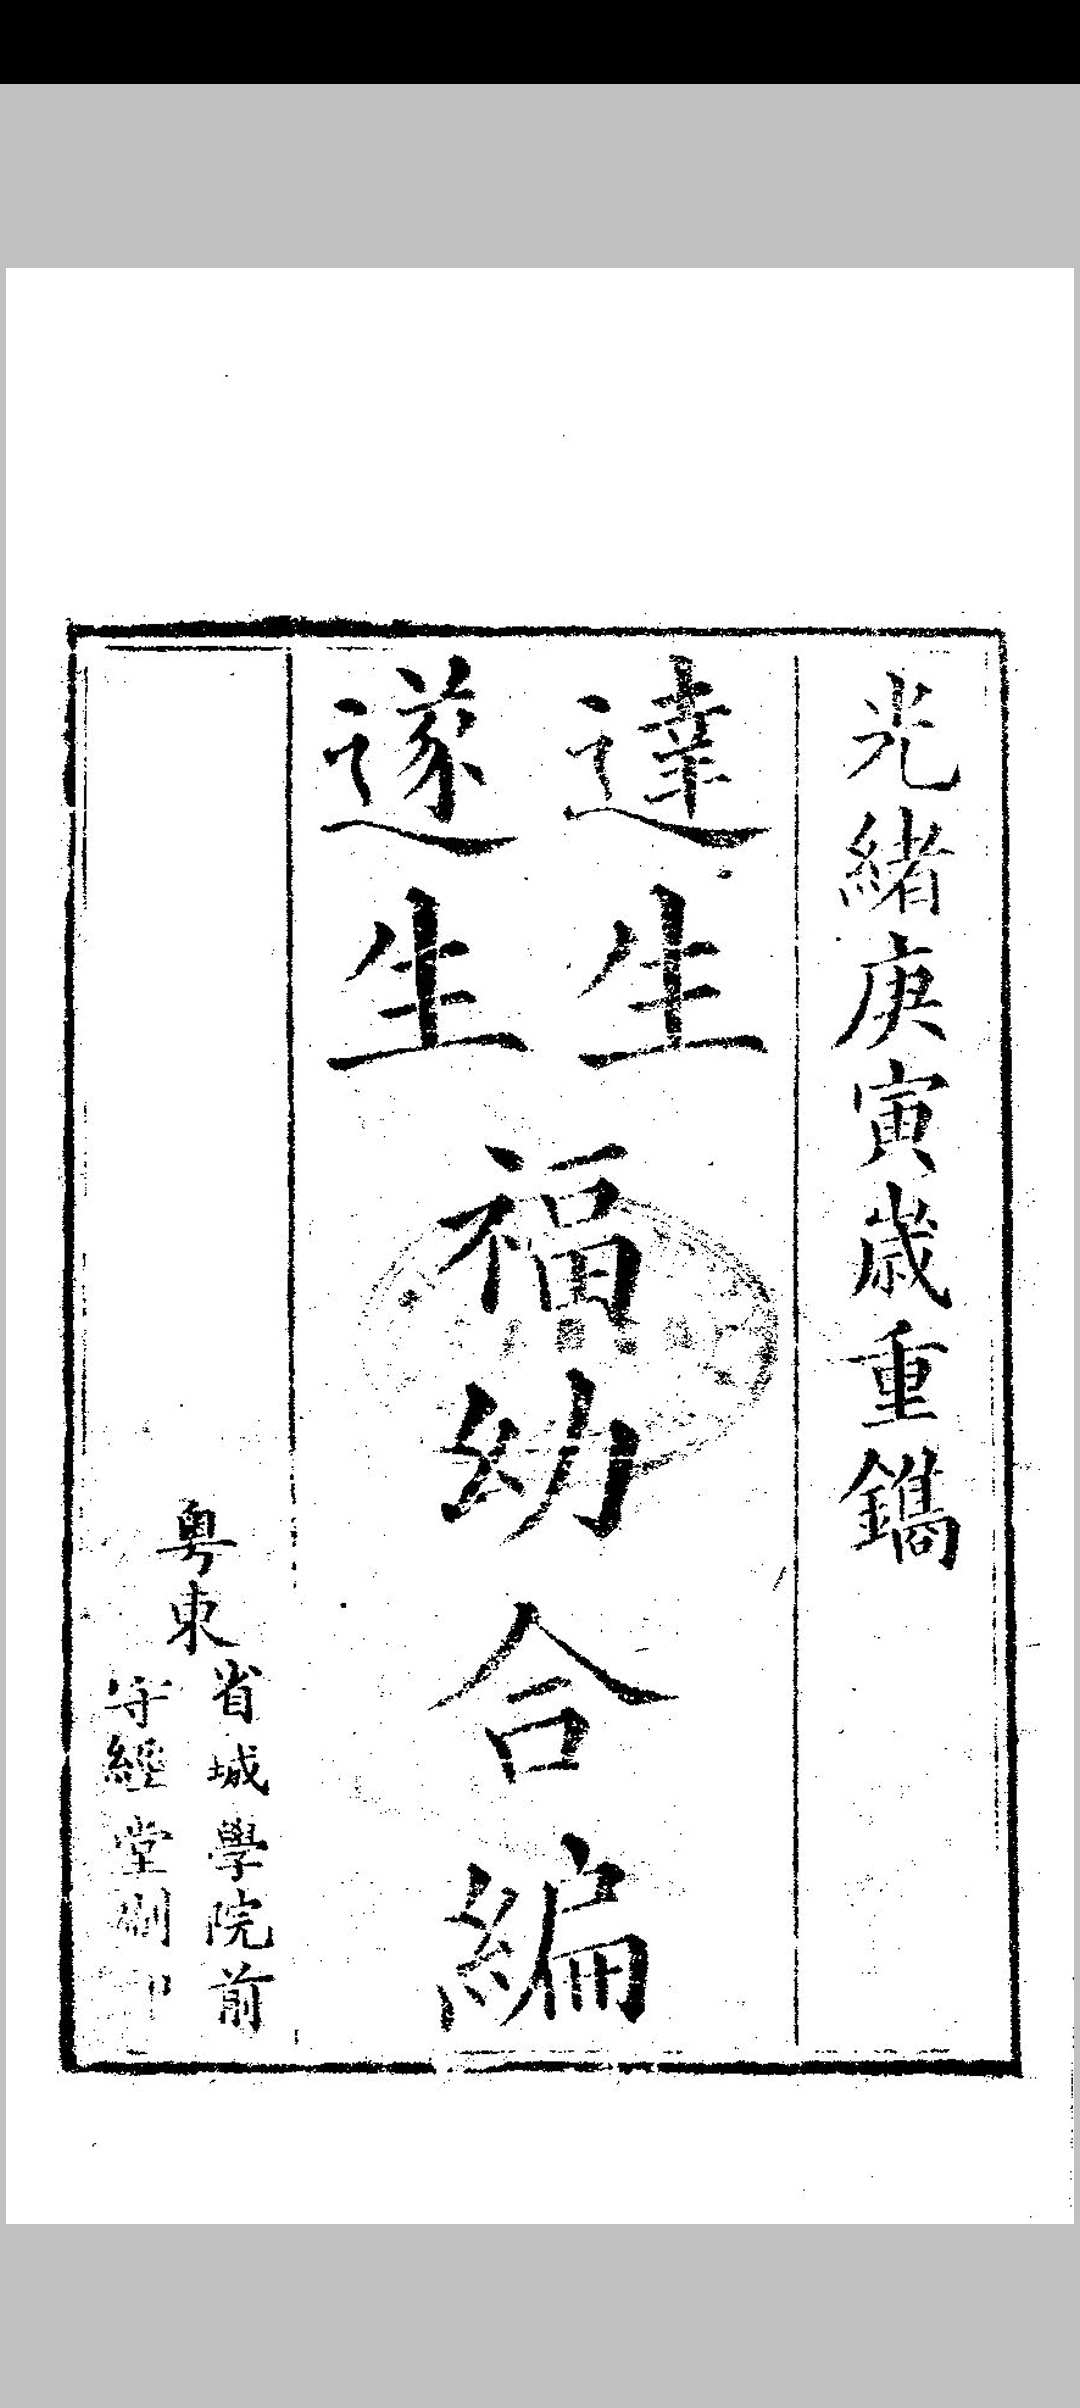 光緒庚寅歲重鐫
達生
遂生
福幼合編
粵東
省城學院前
守經堂刷印